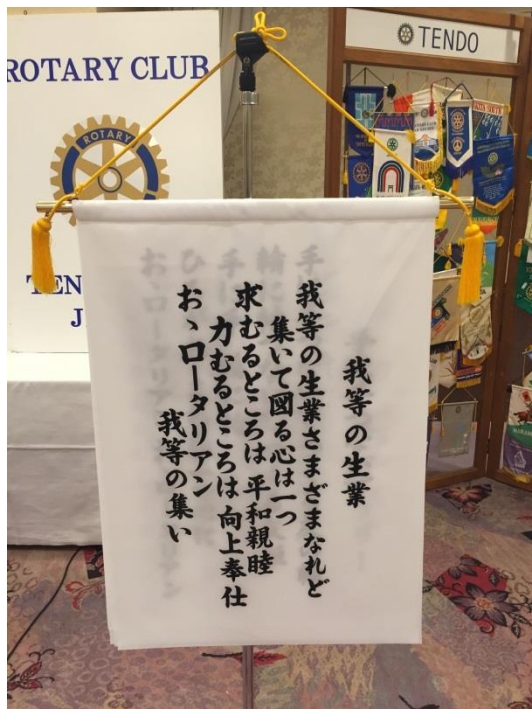 ROTARY CLUB
ROTARY
TENDO
我等の生業
我等の生業さまざまなれど
集いて図る心は一つ
求むるところは 平和親睦
力むるところは 向上奉仕
おゝロータリアン
我等の集い